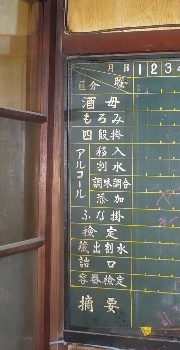 月 日 1 2 3 4
区分
酒母
もろみ
四段掛
アルコール
移入
割水
調味調合
添加
ふな掛
検定
蔵出割水
詰口
容器検定
摘要